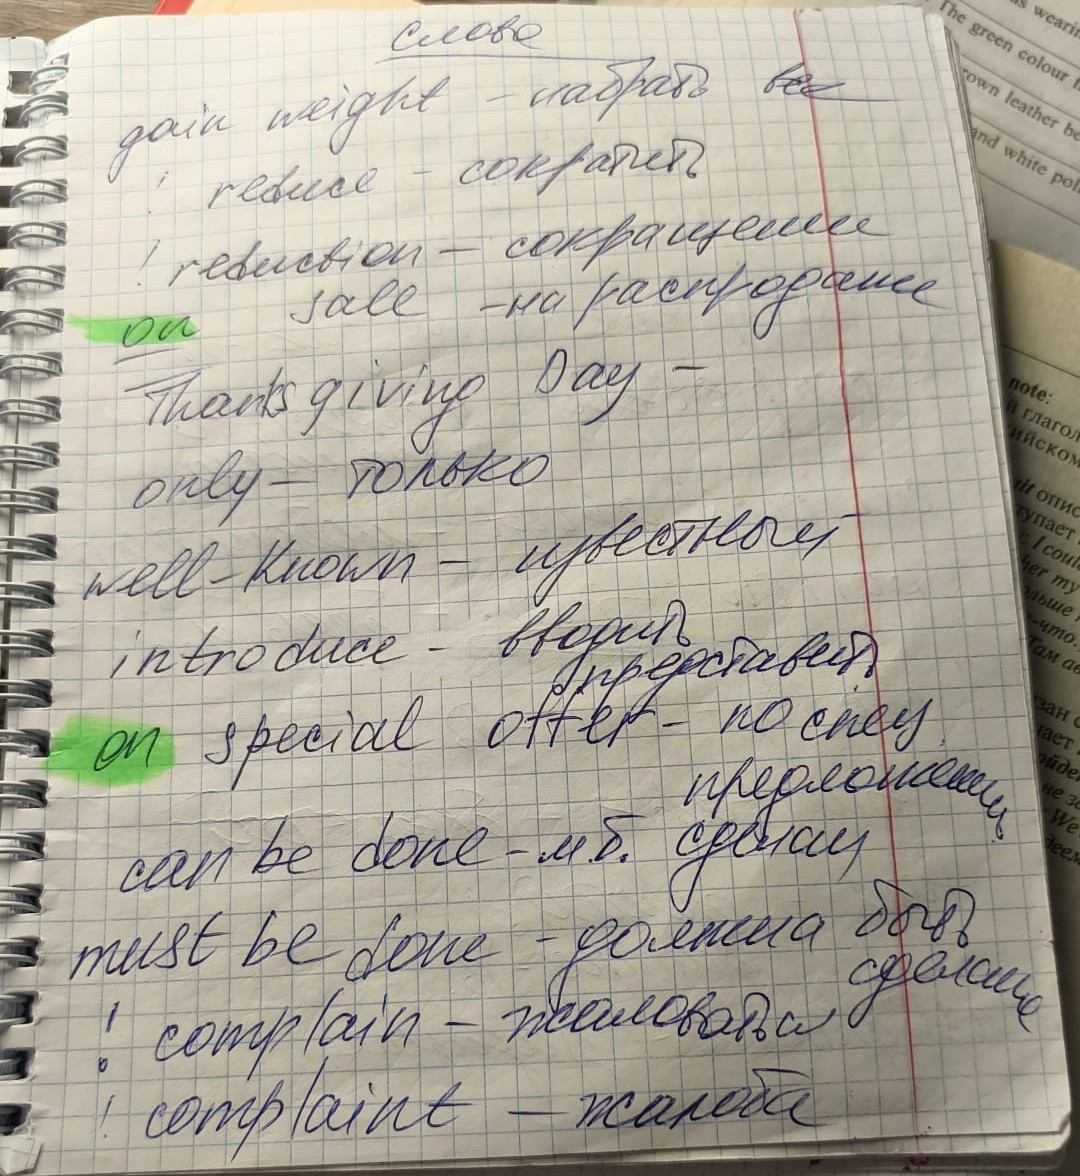 слова
gain weight - набрать вес
! reduce - сократить
! reduction - сокращение
on sale - на распродаже
Thanksgiving Day -
only - только
well-known - известный
introduce - вводить
представить
on special offer - по спец.
предложению
can be done - м.б. сделан
must be done - должна быть
сделана
! complain - жаловаться
! complaint - жалоба
The green colour
own leather be
and white pol
note:
й глагол
ийском
опис
тупает
I coul
her my
ольше
что.
ам
зан с
чает
ойде
не за
We